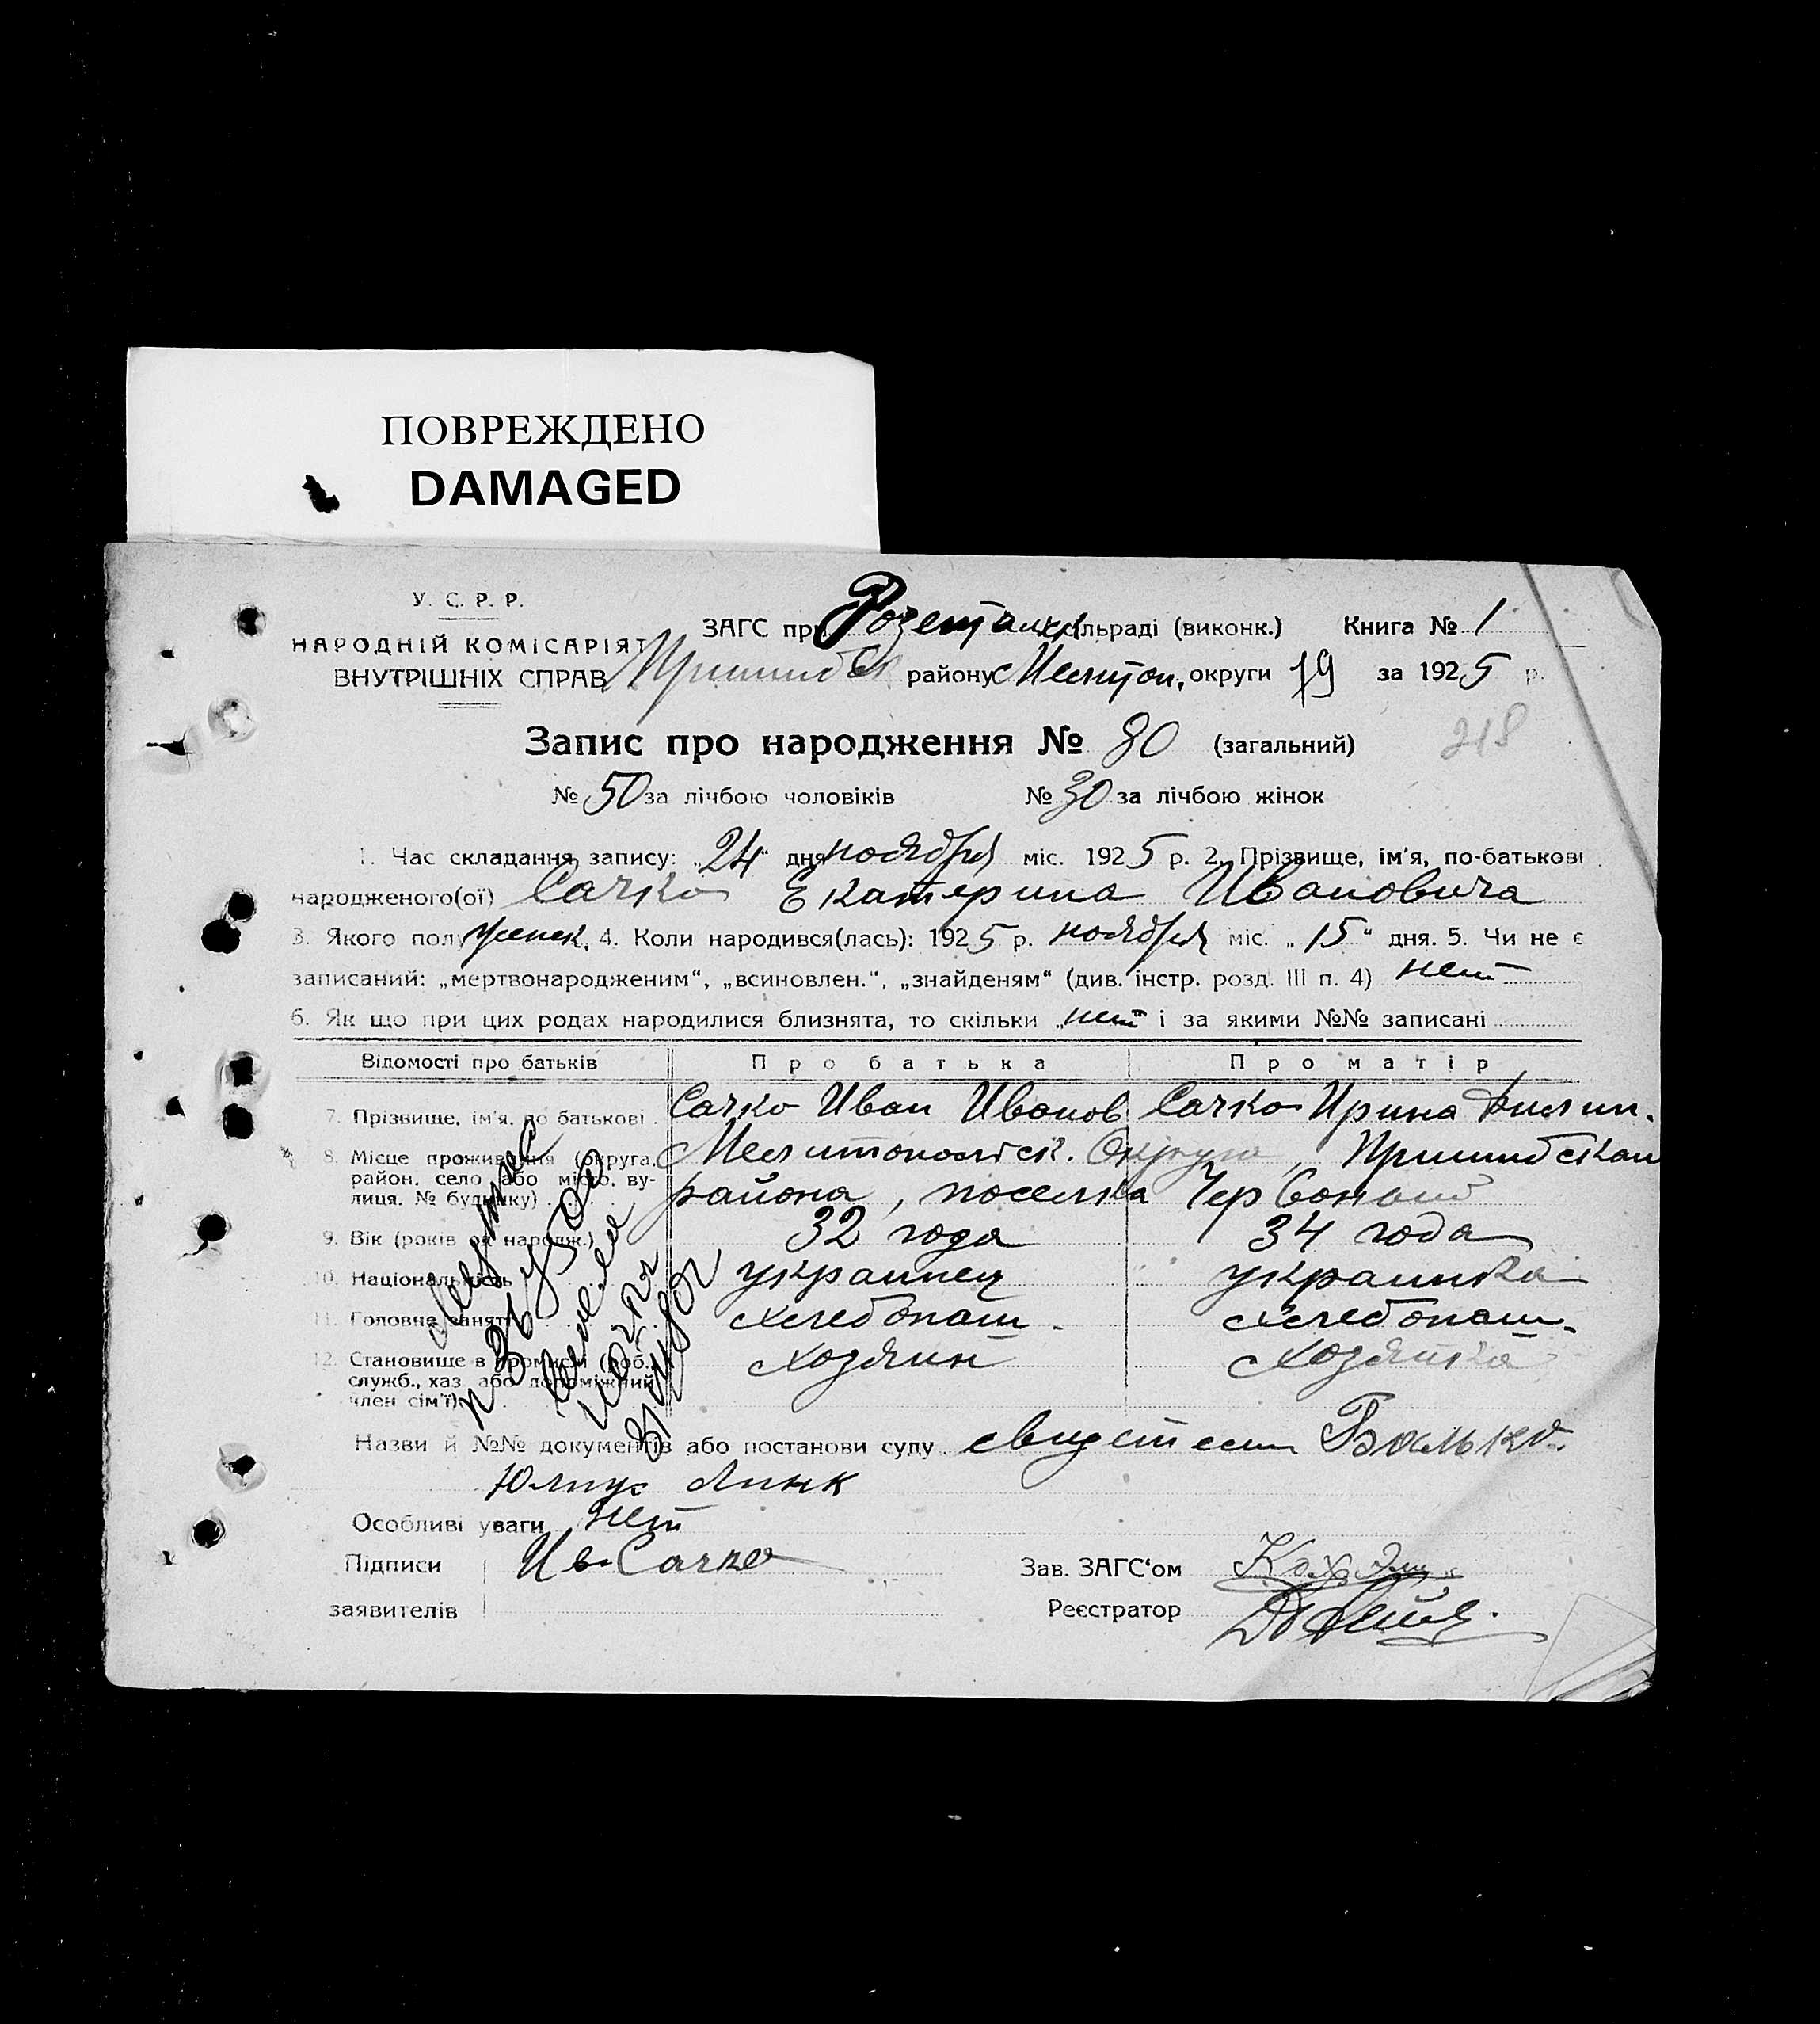 ПОВРЕЖДЕНО
DAMAGED
У. С. Р. Р.
НАРОДНІЙ КОМІСАРІЯТ
ВНУТРІШНІХ СПРАВ
ЗАГС при сільраді (виконк.) Книга № 1
району Мелитоп. округи за 1925 р.
Запис про народження № 80 (загальний)
218
№ 50 за лічбою чоловіків № 30 за лічбою жінок
1. Час складання запису: „24" дня ноября міс. 1925 р. 2. Прізвище, ім'я, по-батькові
народженого(ої) Сачко Екатерина Ивановича
3. Якого полу женск. 4. Коли народився(лась): 1925 р. ноября міс. „15" дня. 5. Чи не є
записаний: „мертвонародженим", „всиновлен.", „знайденям" (див. інстр. розд. III п. 4) нет
6. Як що при цих родах народилися близнята, то скільки „нет" і за якими №№ записані
Відомості про батьків Про батька Про матір
7. Прізвище, ім'я, по батькові Сачко Иван Иванов Сачко Ирина Филип.
8. Місце проживання (округа, район, село або місто, вулиця, № будинку) Мелитопольск. Округа, Пришибскаи
района, поселка Червоный
9. Вік (років од народж.) 32 года 34 года
10. Національність украинец украинка
11. Головне заняття хлебопаш. хлебопаш.
12. Становище в промислі (роб., служб., хаз. або допоміжний член сім'ї) хозяин хозяйка
Назви й №№ документів або постанови суду
Юлиус Линк
Особливі уваги нет
Підписи Ив. Сачко Зав. ЗАГС'ом
заявителів Реєстратор